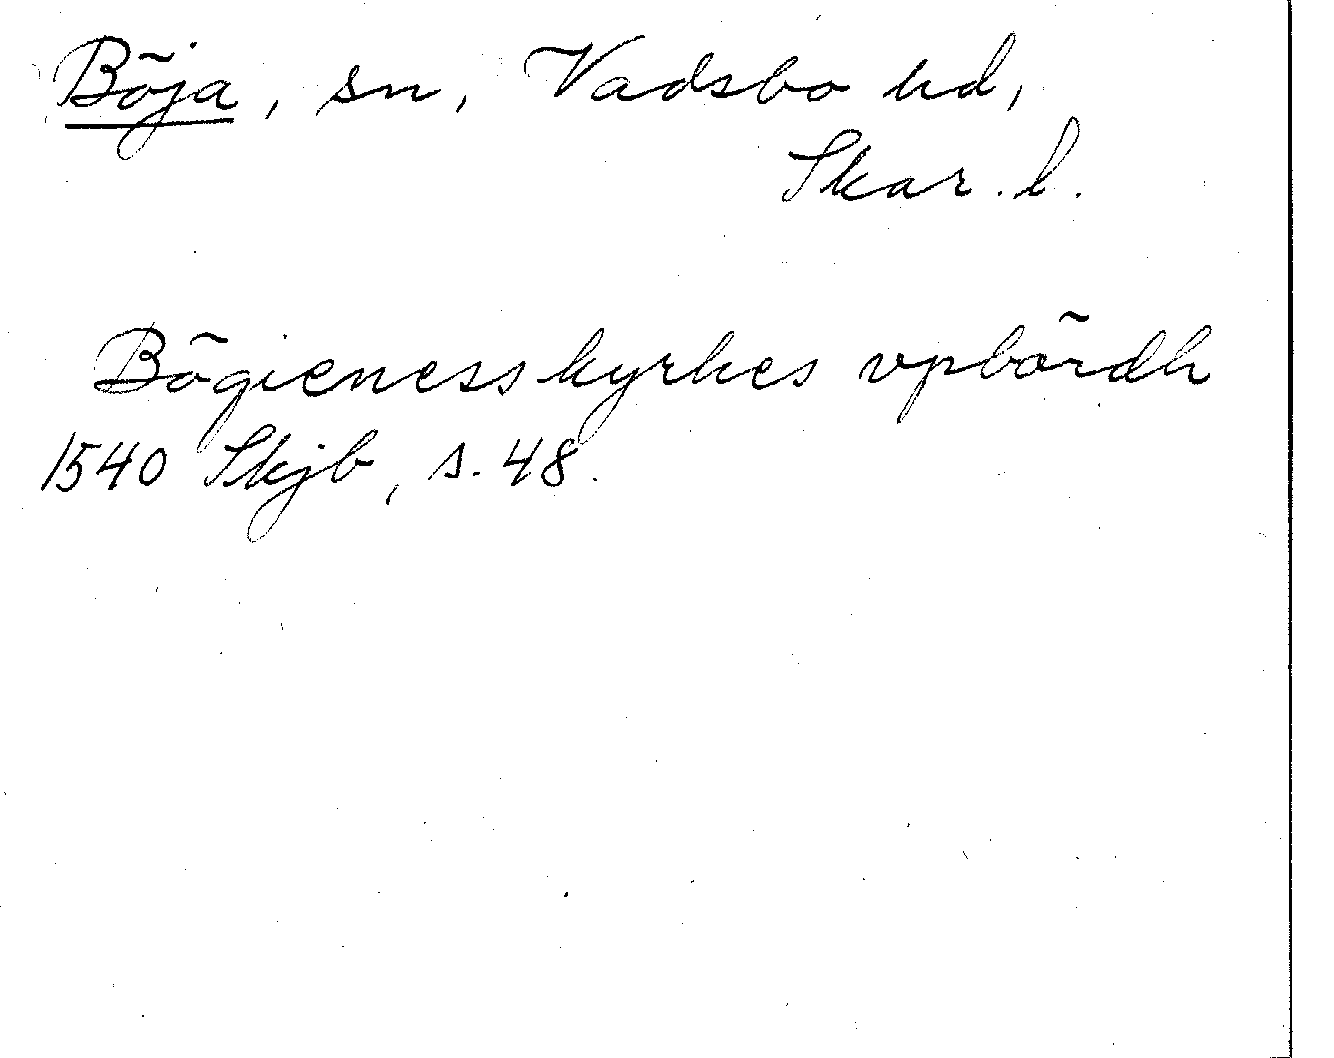 Böja, sn, Vadsbo hd,
Skar. l.
Bögienesskyrkes vpbördh
1540 Skjb, s. 48.